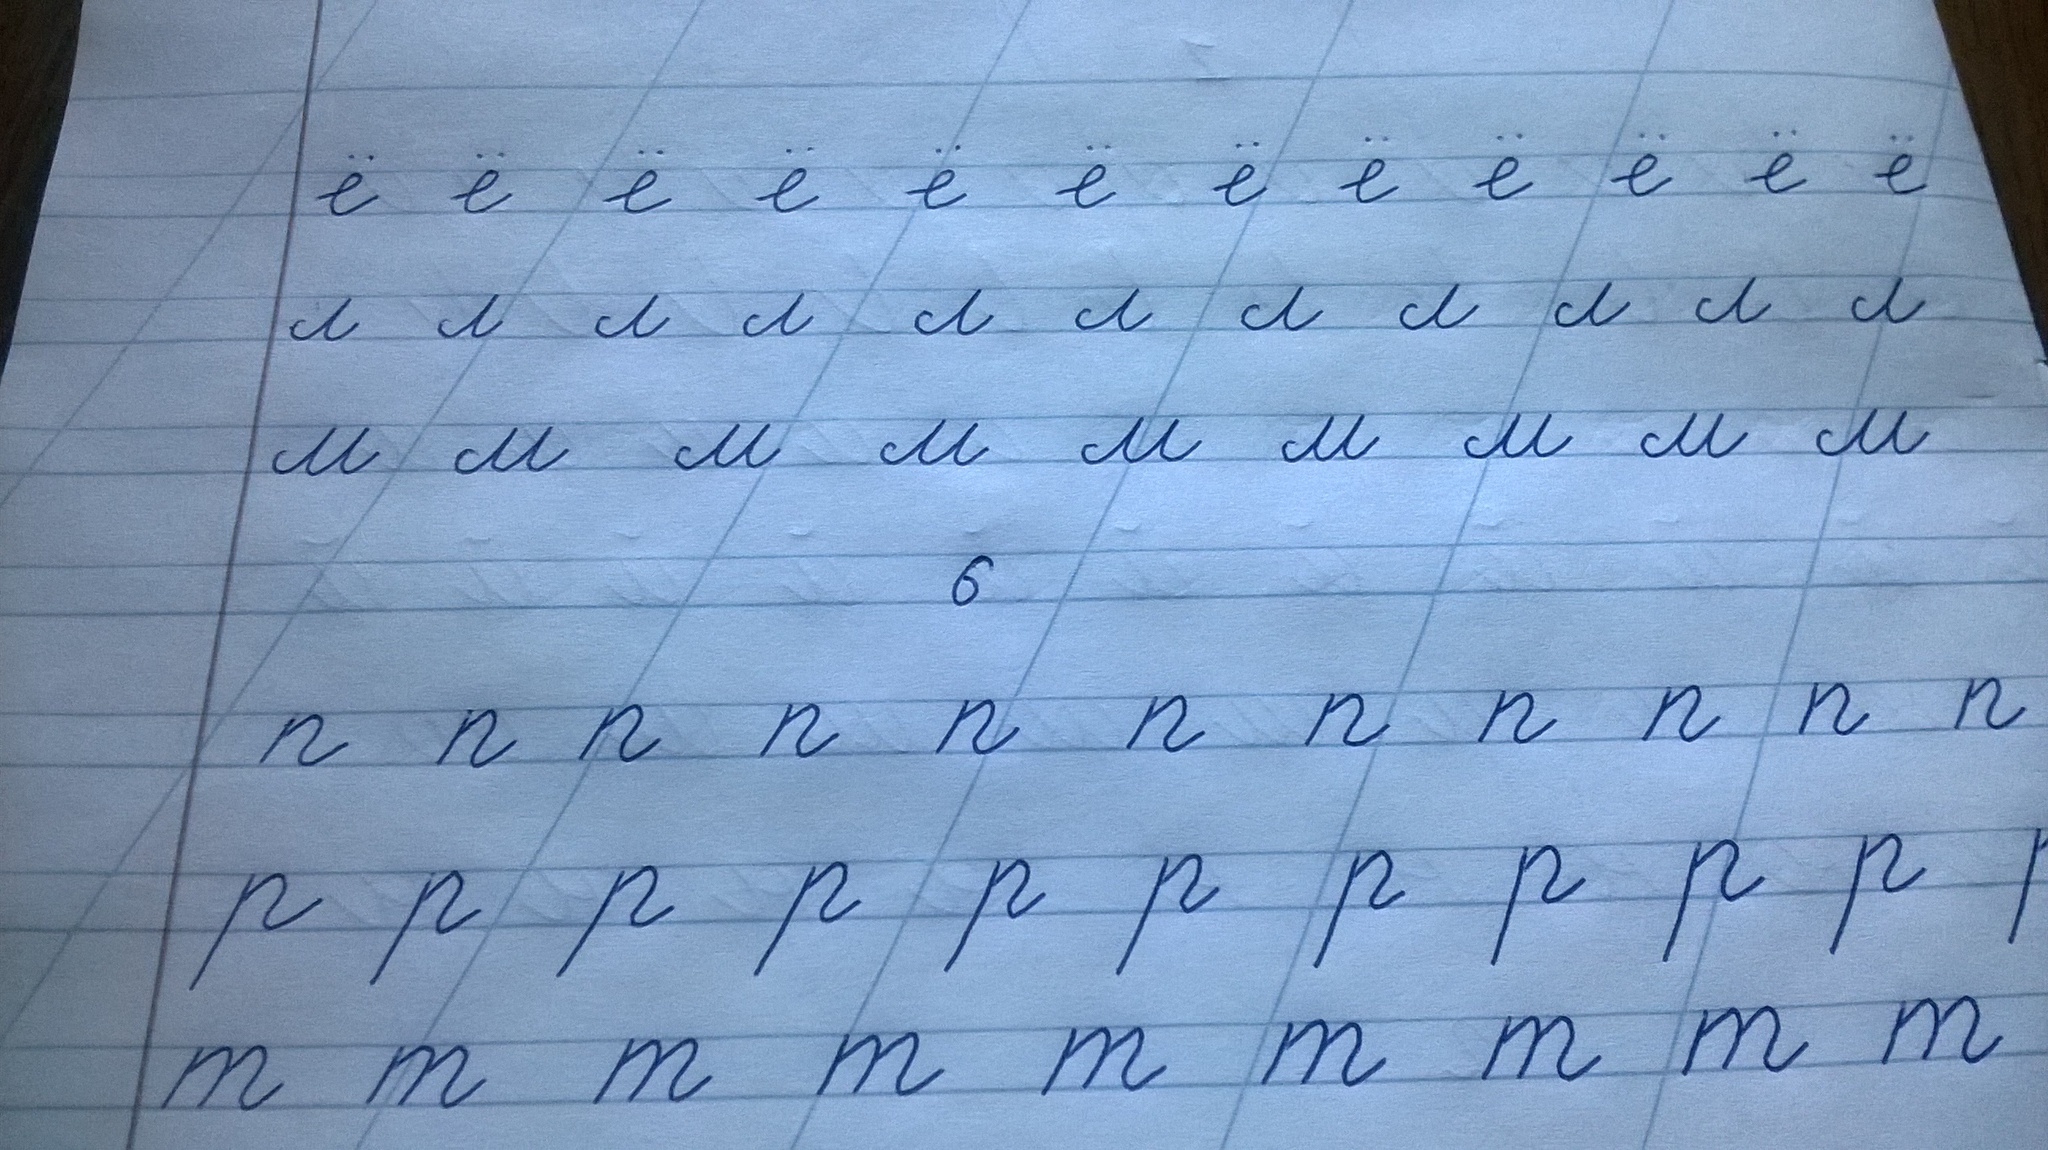 ё ё ё ё ё ё ё ё ё ё ё ё
л л л л л л л л л л л
м м м м м м м м м
6
п п п п п п п п п п п
р р р р р р р р р р р
т т т т т т т т т